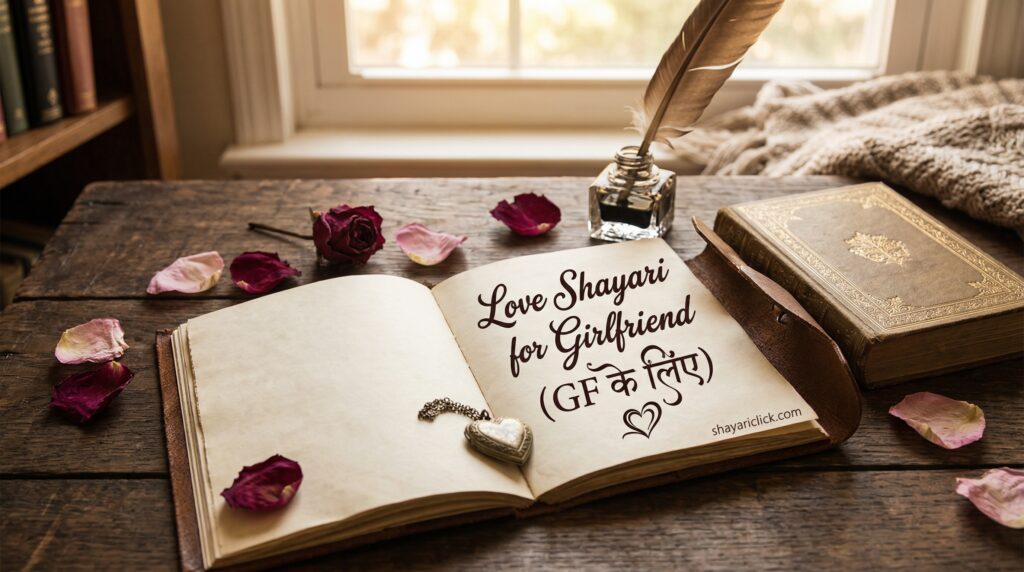 Love Shayari
for Girlfriend
(GF के लिए)
shayariclick.com